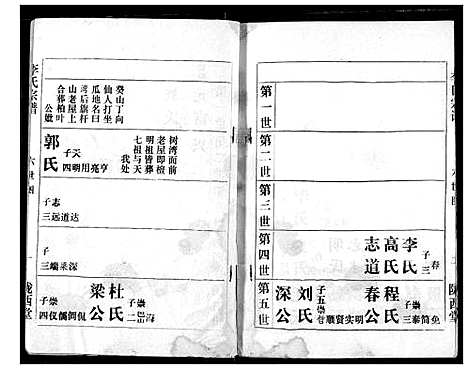 第一世
第二世
第三世
第四世
第五世
李氏
高氏
志道
子三
春
程氏
春公
子崇
三泰免简
刘氏
深公
子五崇
贤顺实明
树湾面前
老屋即檀
明祖皆葬
七祖与天
我处
癸山丁向
仙人打坐
瓜地名曰
湾后旗杆
山老屋上
合郝柏叶
公嫩
郭氏
子天
四明用亮亨
子志
三远道达
子
三端采深
杜氏
梁公
子崇
二岱海
子崇
四仪儒俩侃
李氏宗谱
六世图
一
陇西堂
陇西堂